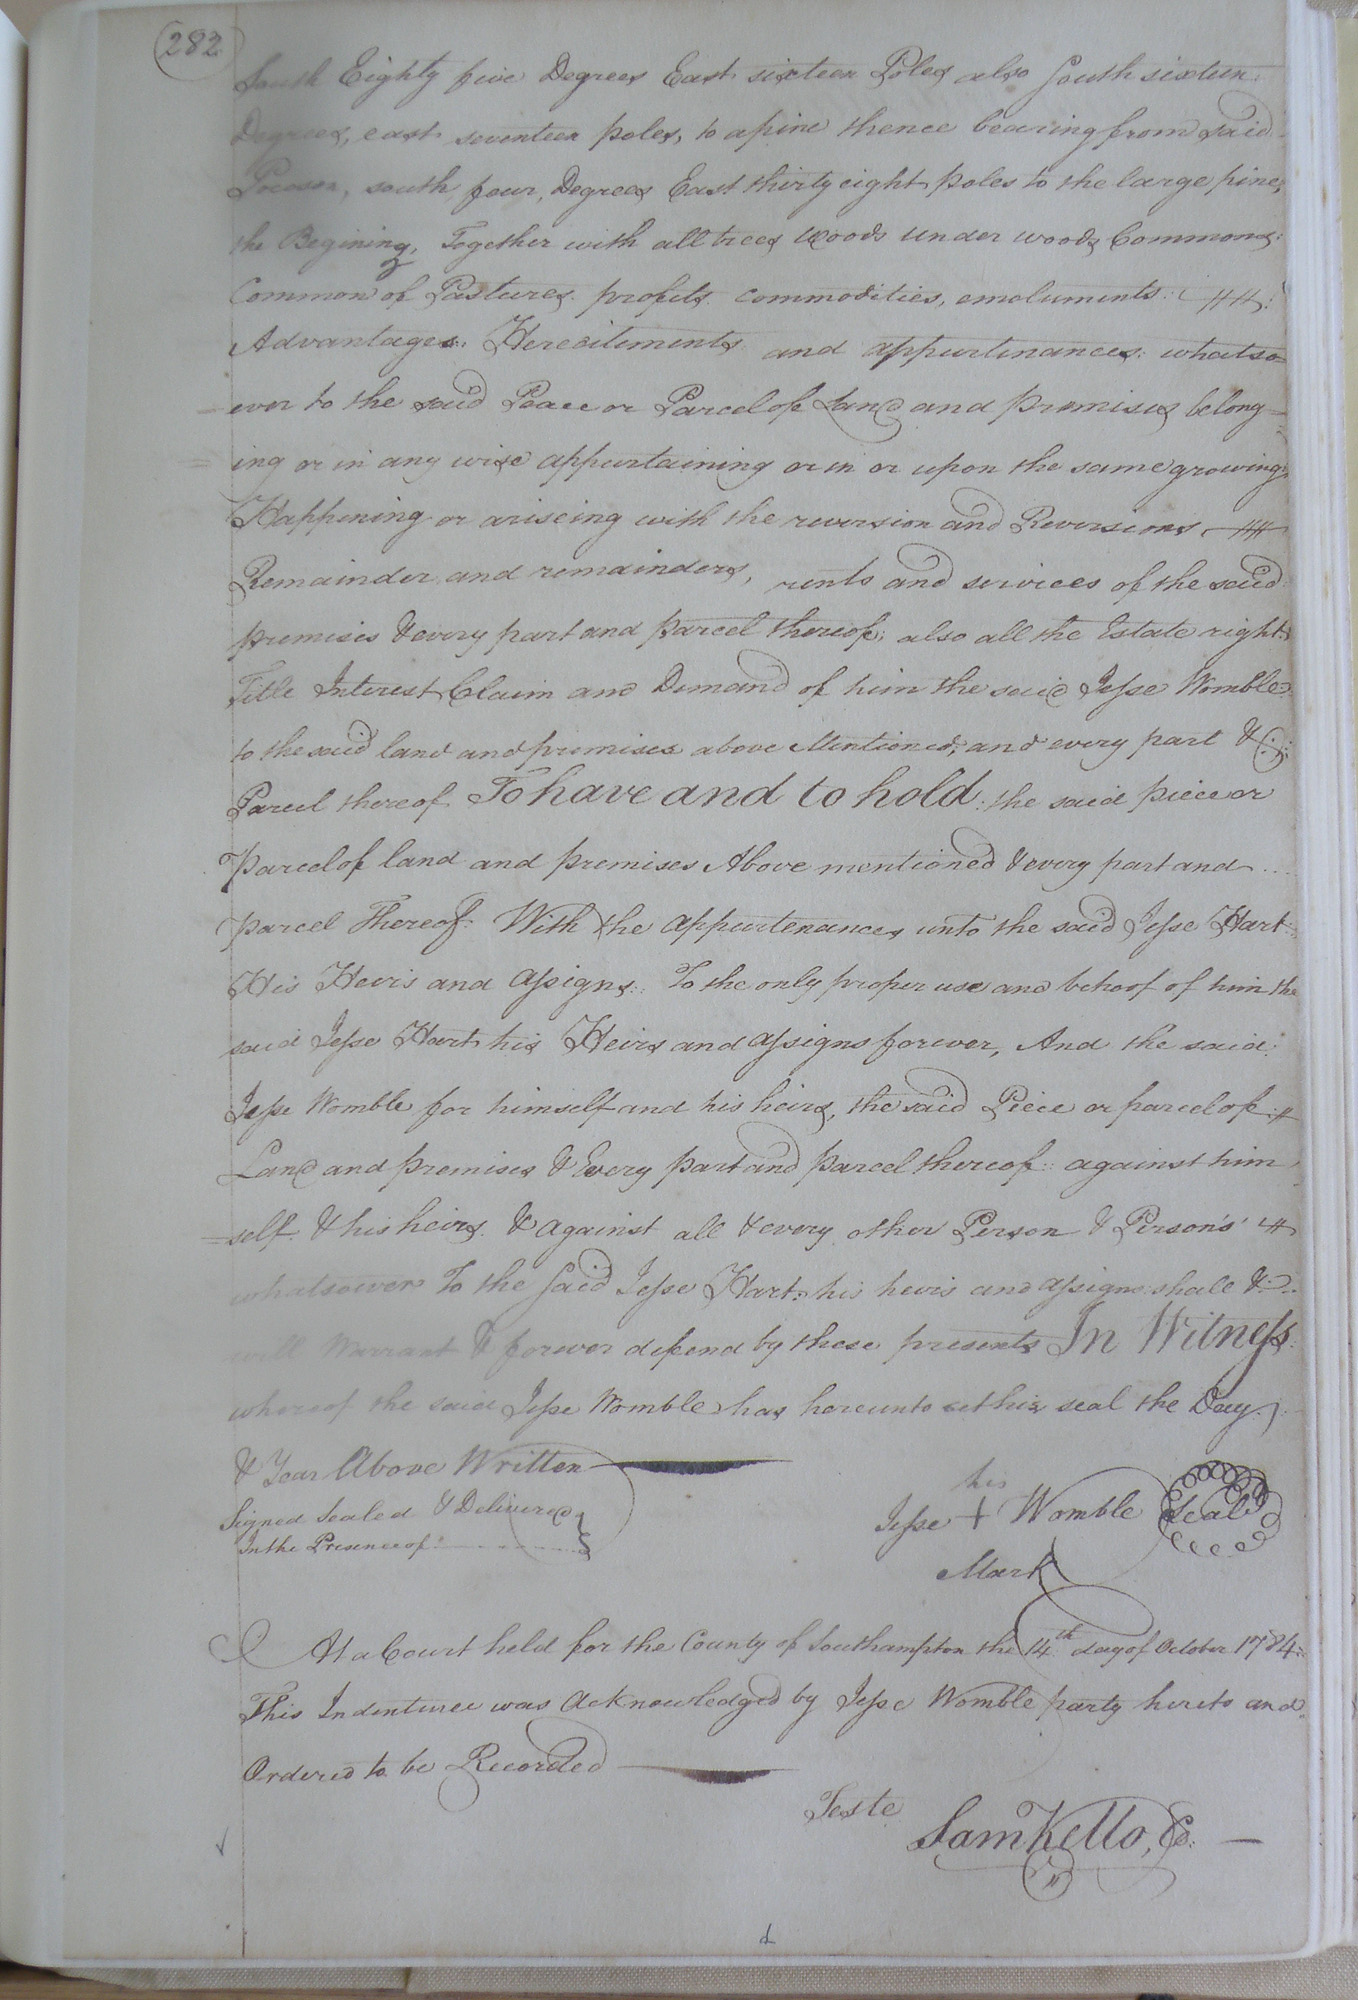 282
South Eighty five Degrees East sixteen Poles also South sixteen
Degrees, east seventeen poles, to a pine thence bearing from said
Pocoson, south, four, Degrees East thirty eight poles to the large pine,
the Begining, Together with all trees Woods under woods Commons:
Common of Pastures profits commodities, emoluments:
Advantages: Hereditements and appurtinances: whatso=
ever to the said Peace or Parcel of Land and premises belong=
=ing or in any wise appurtaining or in or upon the same growing
Happening or ariseing with the reversion and Reversions
Remainder and remainders, rents and services of the said
premises & every part and parcel thereof; also all the Estate right
Title Interest Claim and Demand of him the said Jesse Womble
to the said land and premises above Mentioned, and every part &
Parcel thereof To have and to hold: the said piece or
Parcel of land and premises Above mentioned & every part and
parcel Thereof: With the appurtenances unto the said Jesse Hart
His Hevis and assigns: To the only proper use and behoof of him the
said Jesse Hart his Heirs and assigns forever, And the said
Jesse Womble for himself and his heirs, the said Piece or parcel of
Land and premises & Every part and parcel thereof: against him
=self & his heirs & against all & every other Person & Person's
whatsoever To the said Jesse Hart: his hevis and assigns shall &
will Warrant & forever defend by these presents In Witness
whereof the said Jesse Womble has hereunto set his seal the Day
& Year Above Written
Signed Sealed & Delivered
In the Presence of:
his
Jesse + Womble Seal
Mark
At a Court held for the County of Southampton the 14th day of October 1784:
This Indenturee was Acknowledged by Jesse Womble party hereto and
Ordered to be Recorded
Teste
Sam Kello, C.